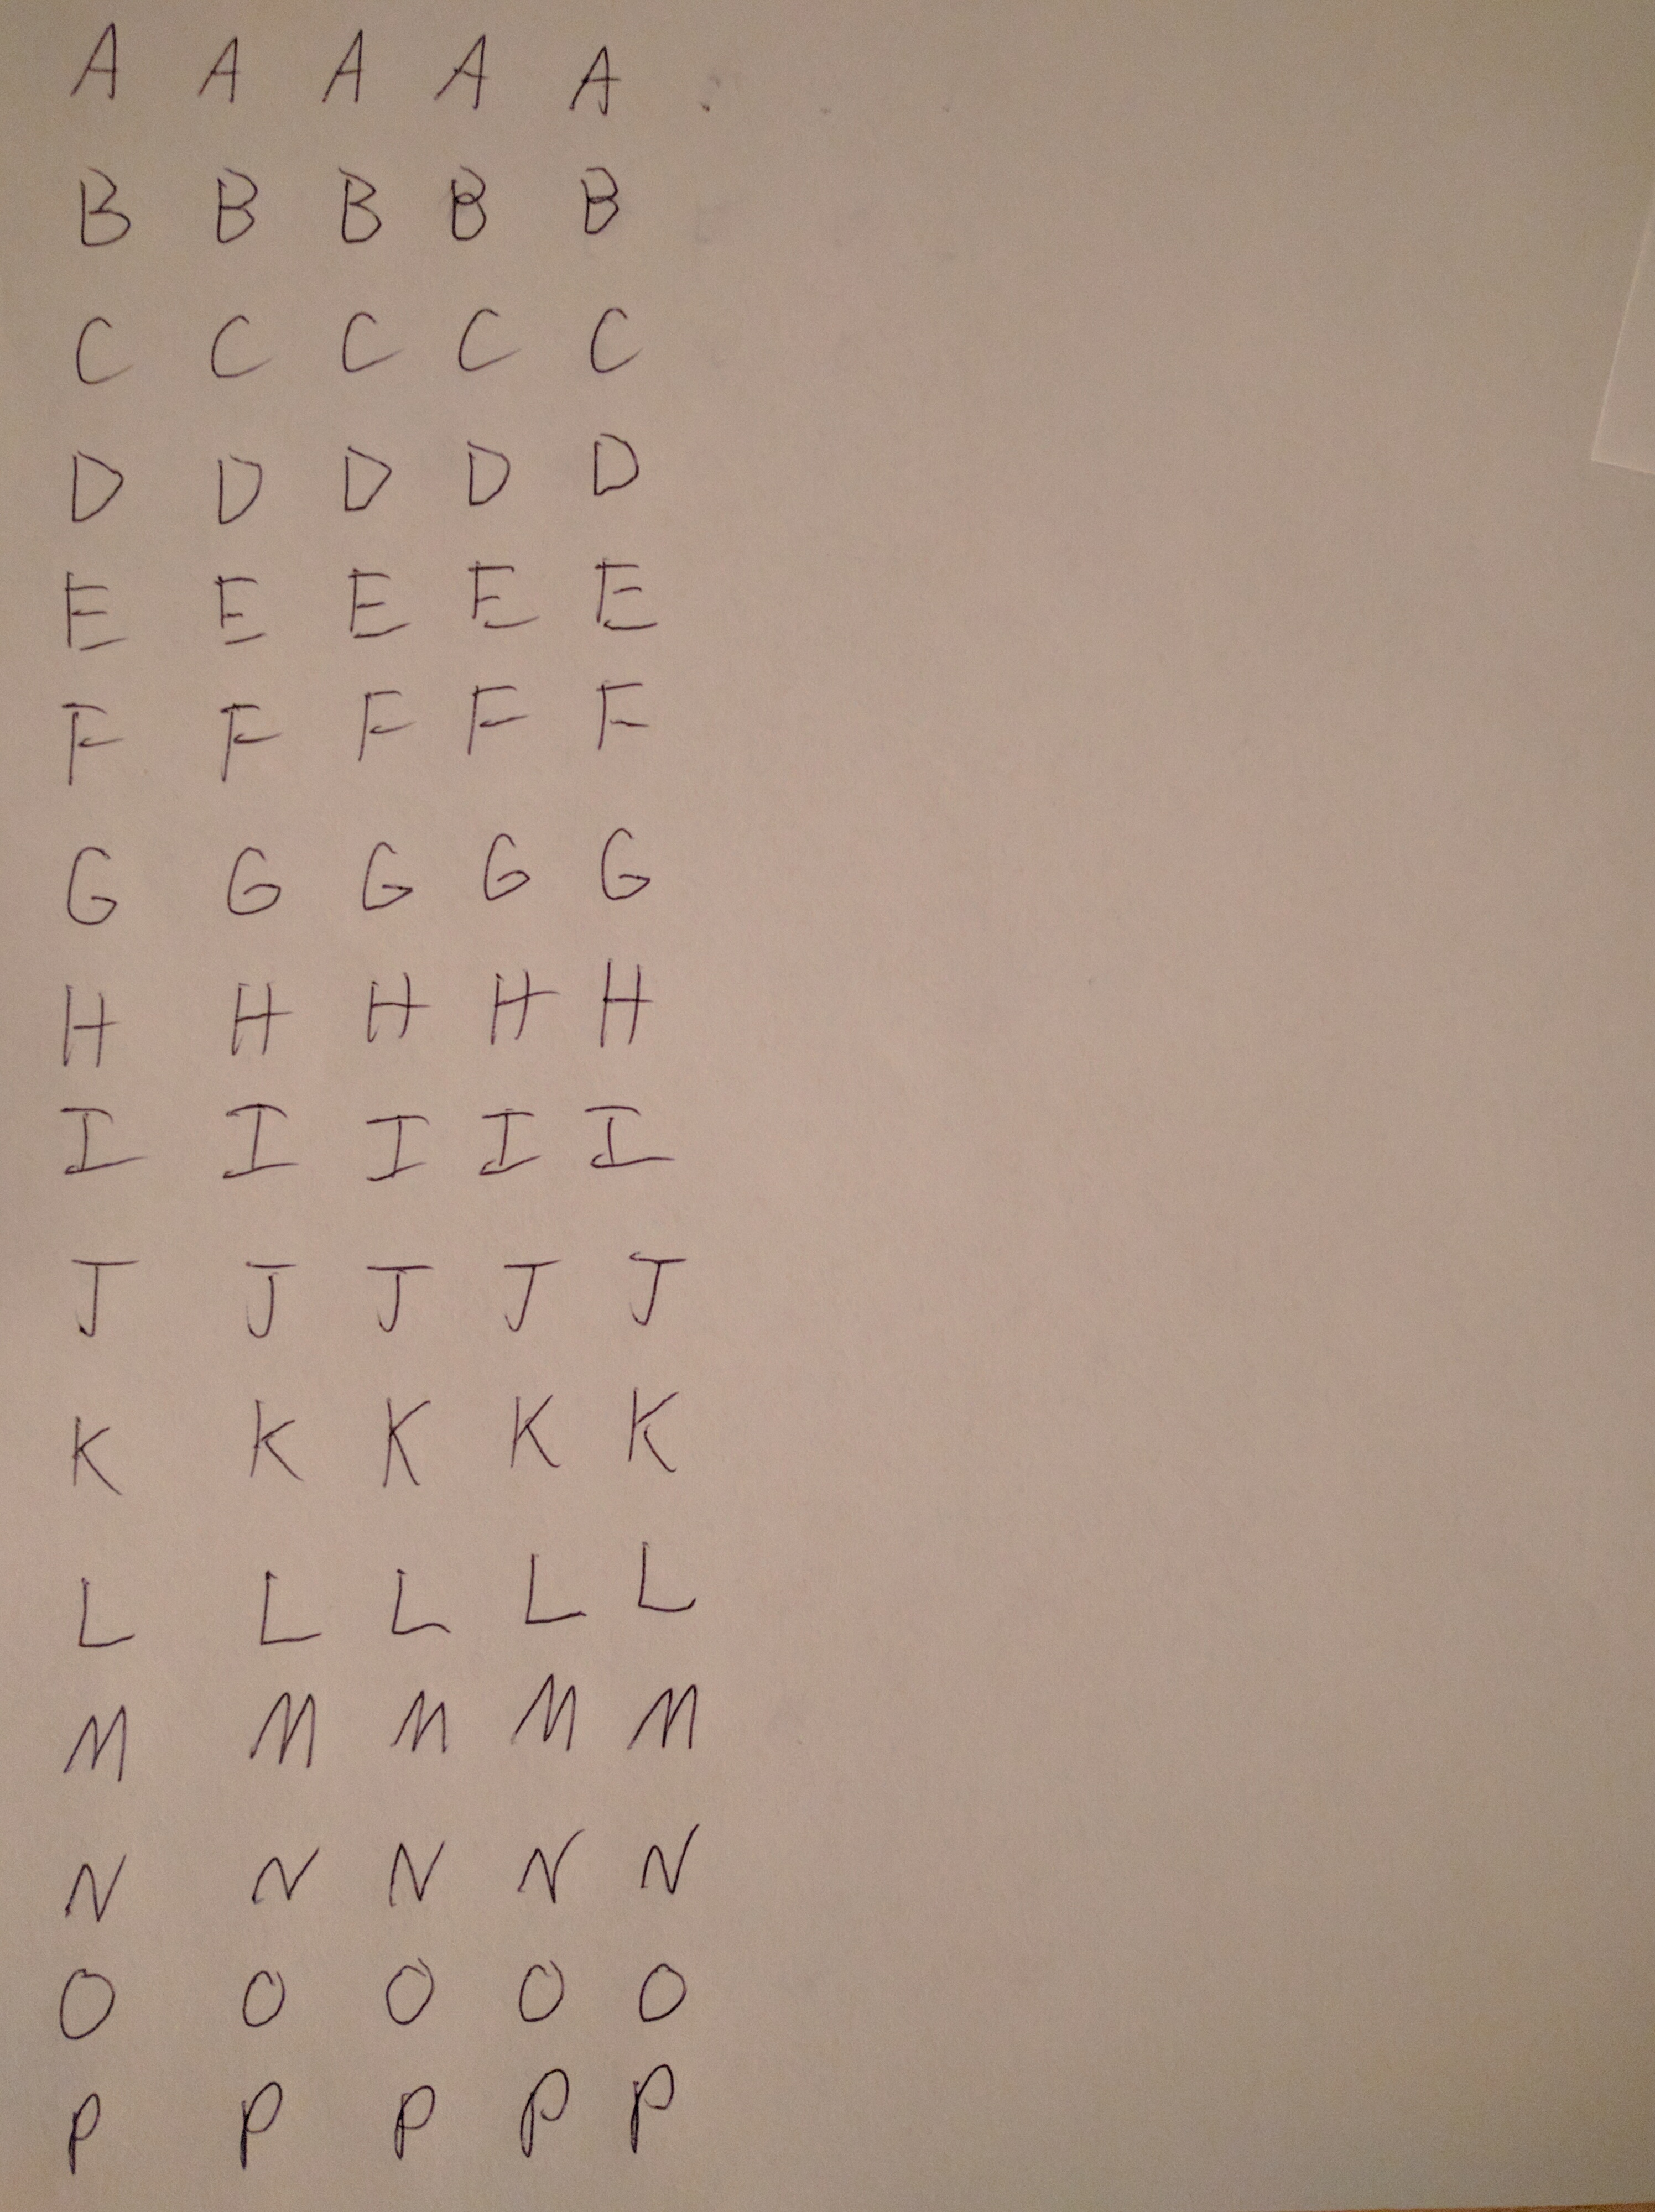 A A A A A
B B B B B
C C C C C
D D D D D
E E E E E
F F F F F
G G G G G
H H H H H
I I I I I
J J J J J
K K K K K
L L L L L
M M M M M
N N N N N
O O O O O
P P P P P